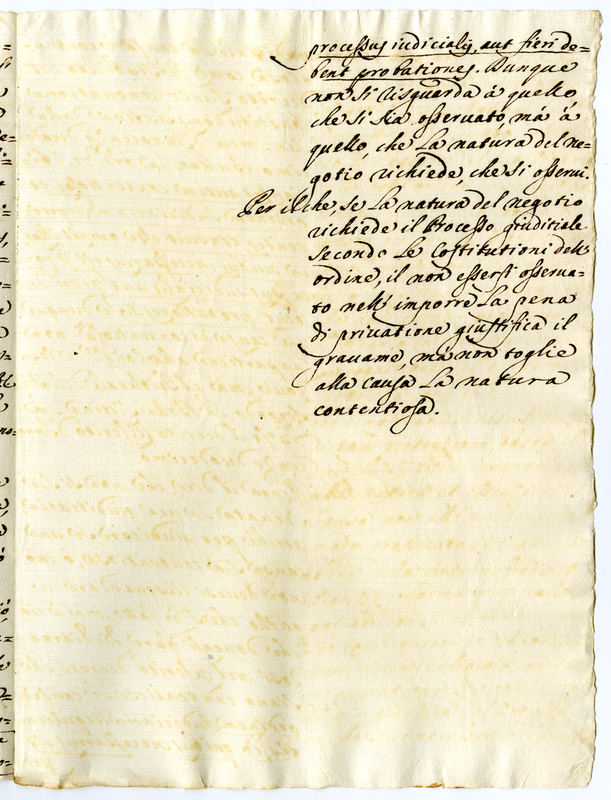 processus iudicialis, aut fieri de=
bent probationes. Dunque
non si risguarda à quello
che si sia osseruato, mà à
quello, che La natura del ne=
gotio richiede, che si osserui.
Per il che, se La natura del negotio
richiede il Processo giuditiale
secondo Le Costitutioni dell'
ordine, il non essersi osserua=
to nell' imporre La pena
di priuatione giustifica il
grauame, mà non toglie
alla causa La natura
contentiosa.